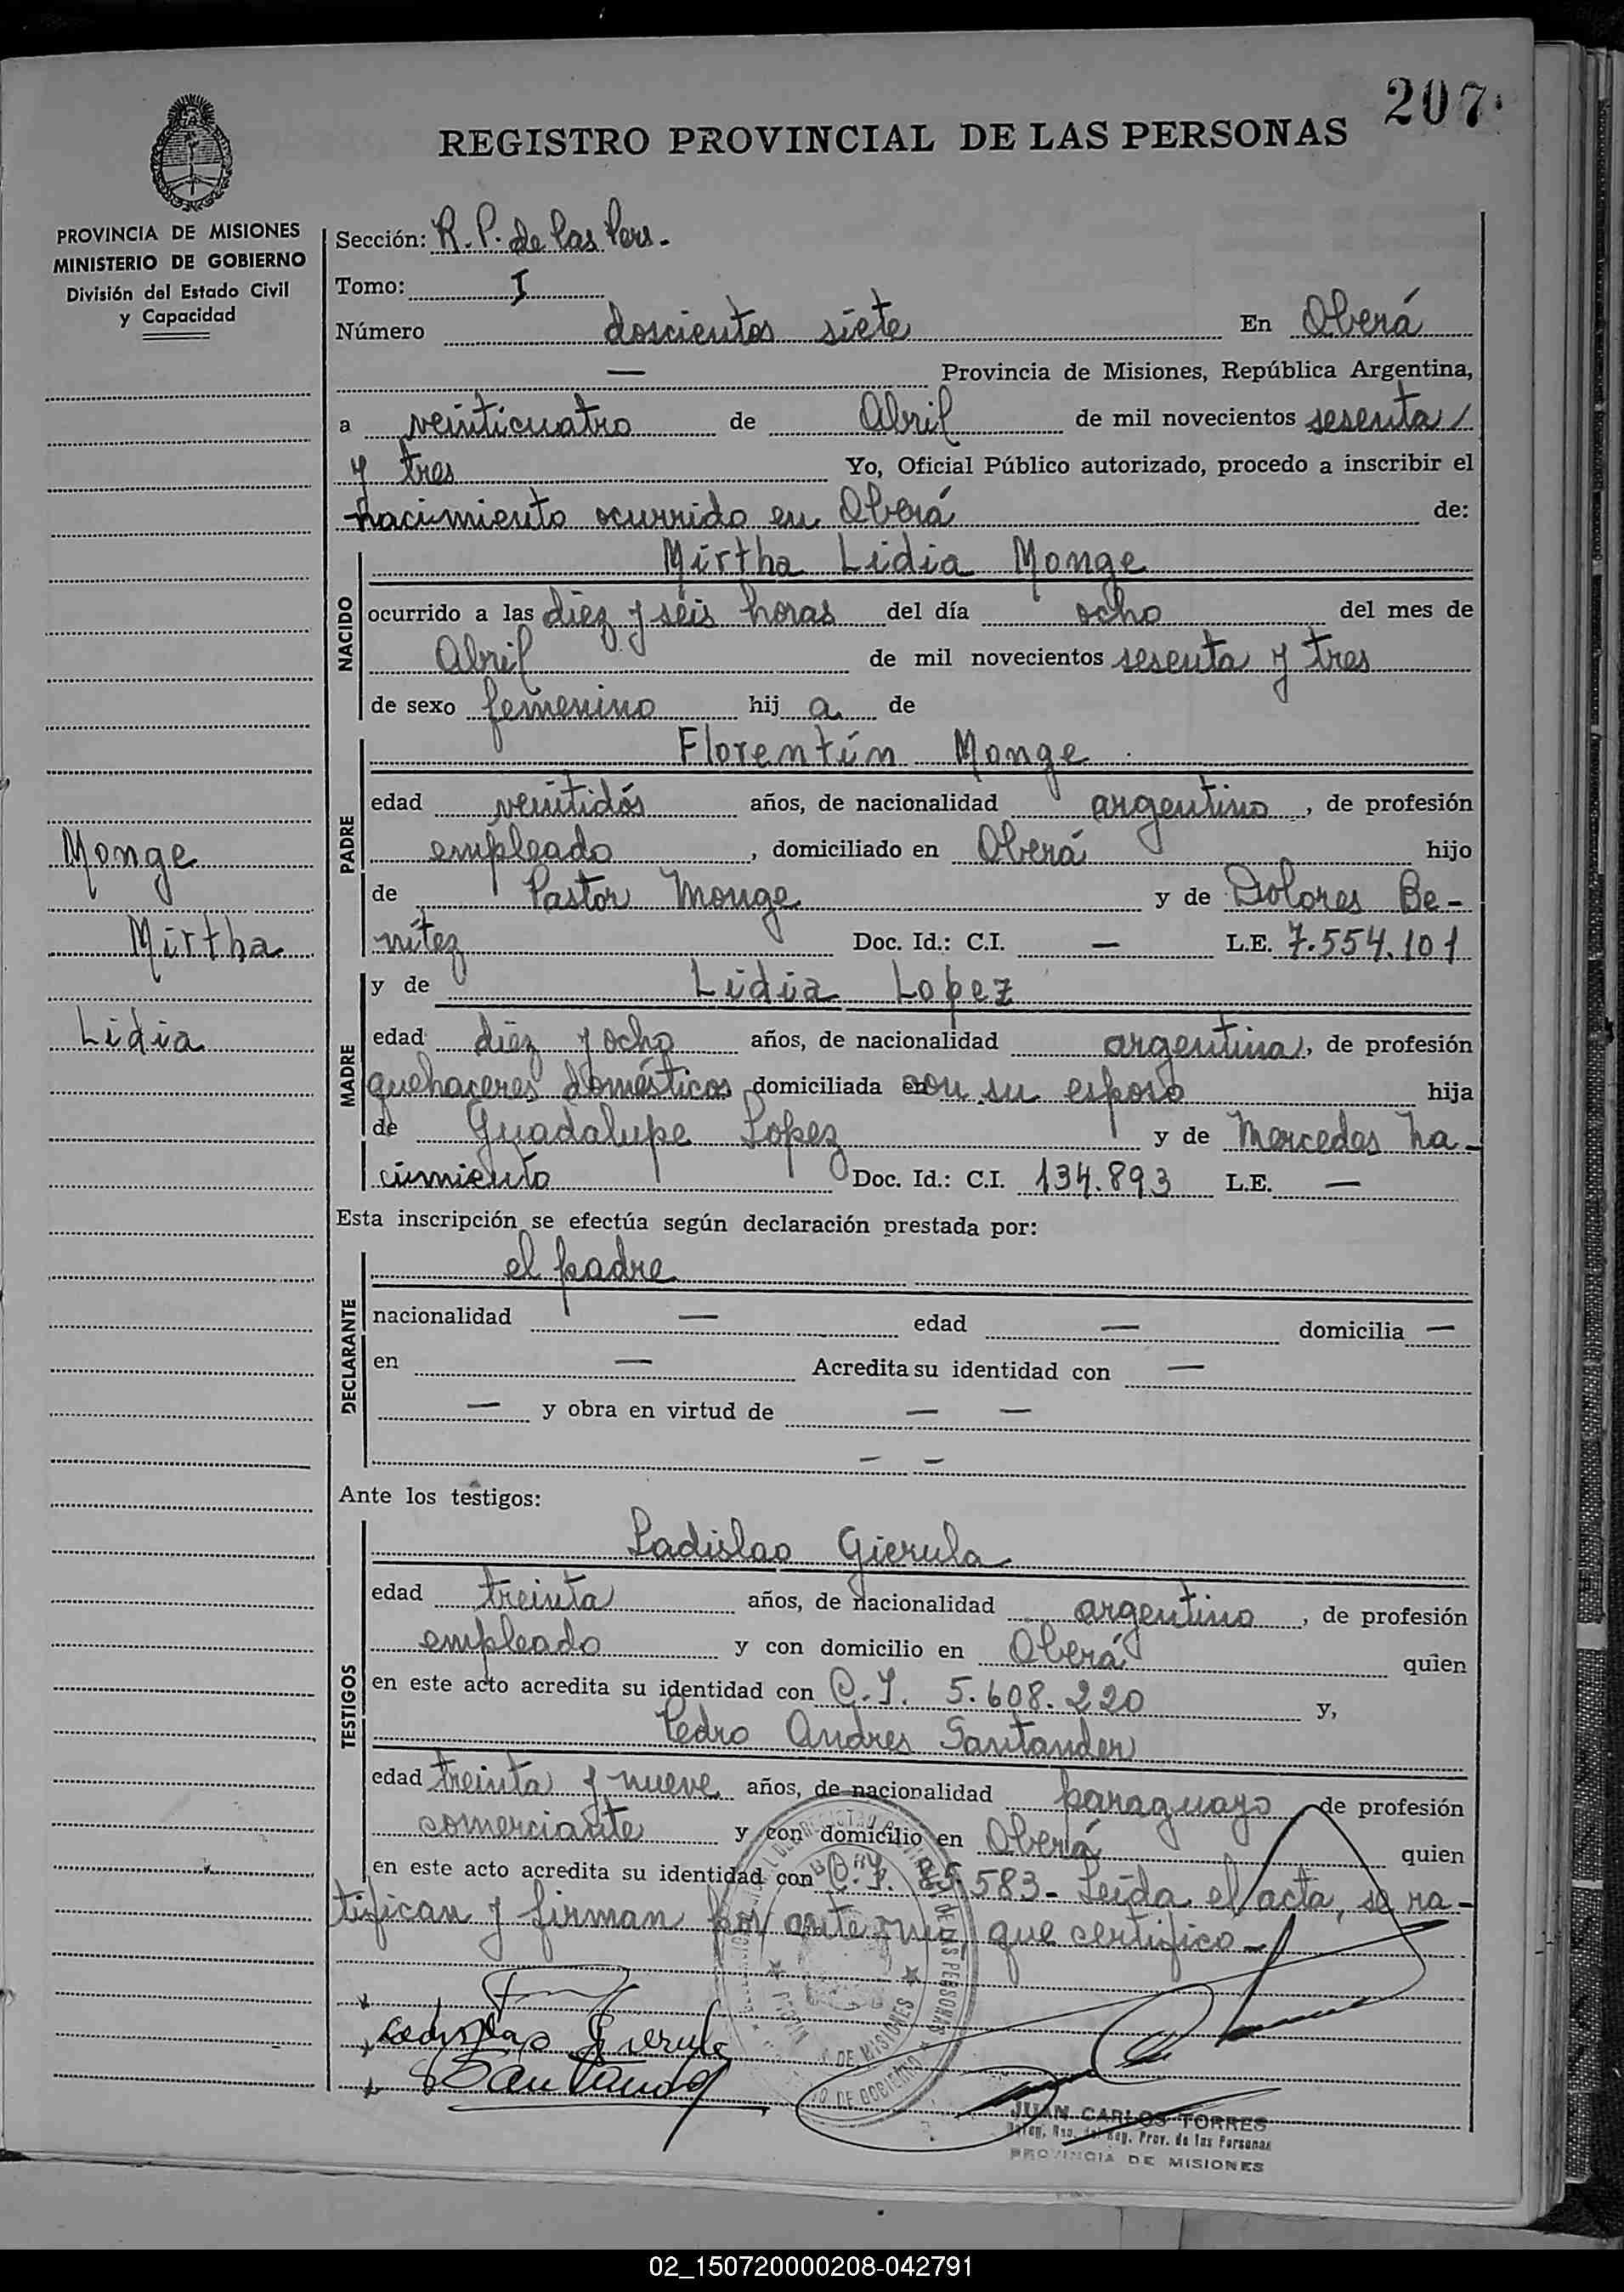 207
REGISTRO PROVINCIAL DE LAS PERSONAS
PROVINCIA DE MISIONES
MINISTERIO DE GOBIERNO
División del Estado Civil
y Capacidad
Sección: R. P. de las Pers.
Tomo: I
Número doscientos siete En Oberá
— Provincia de Misiones, República Argentina,
a veinticuatro de Abril de mil novecientos sesenta
y tres Yo, Oficial Público autorizado, procedo a inscribir el
nacimiento ocurrido en Oberá de:
NACIDO
Mirtha Lidia Monge
ocurrido a las diez y séis horas del día ocho del mes de
Abril de mil novecientos sesenta y tres
de sexo femenino hij a de
PADRE
Florentín Monge
edad veintidós años, de nacionalidad argentino, de profesión
empleado, domiciliado en Oberá hijo
de Pastor Monge y de Dolores Be-
nítez Doc. Id.: C.I. — L.E. 7.554.101
MADRE
y de Lidia Lopez
edad diez y ocho años, de nacionalidad argentina, de profesión
quehaceres domésticos domiciliada en con su esposo hija
de Guadalupe Lopez y de Mercedes Na-
cimiento Doc. Id.: C.I. 134.893 L.E. —
Monge
Mirtha
Lidia
Esta inscripción se efectúa según declaración prestada por:
DECLARANTE
el padre
nacionalidad — edad — domicilia —
en — Acredita su identidad con —
— y obra en virtud de — —
— —
Ante los testigos:
TESTIGOS
Ladislao Gierula
edad treinta años, de nacionalidad argentino, de profesión
empleado y con domicilio en Oberá quien
en este acto acredita su identidad con C.I. 5.608.220 y,
Pedro Andres Santander
edad treinta y nueve años, de nacionalidad paraguayo de profesión
comerciante y con domicilio en Oberá quien
en este acto acredita su identidad con C.I. 85.583- Leída el acta, se ra-
tifican y firman por ante mí, que certifico-
Ladislao Gierula
Santander
DE LAS PERSONAS
DE MISIONES
DE GOBIERNO
JUAN CARLOS TORRES
Reg. Prov. de las Personas
PROVINCIA DE MISIONES
02_150720000208-042791